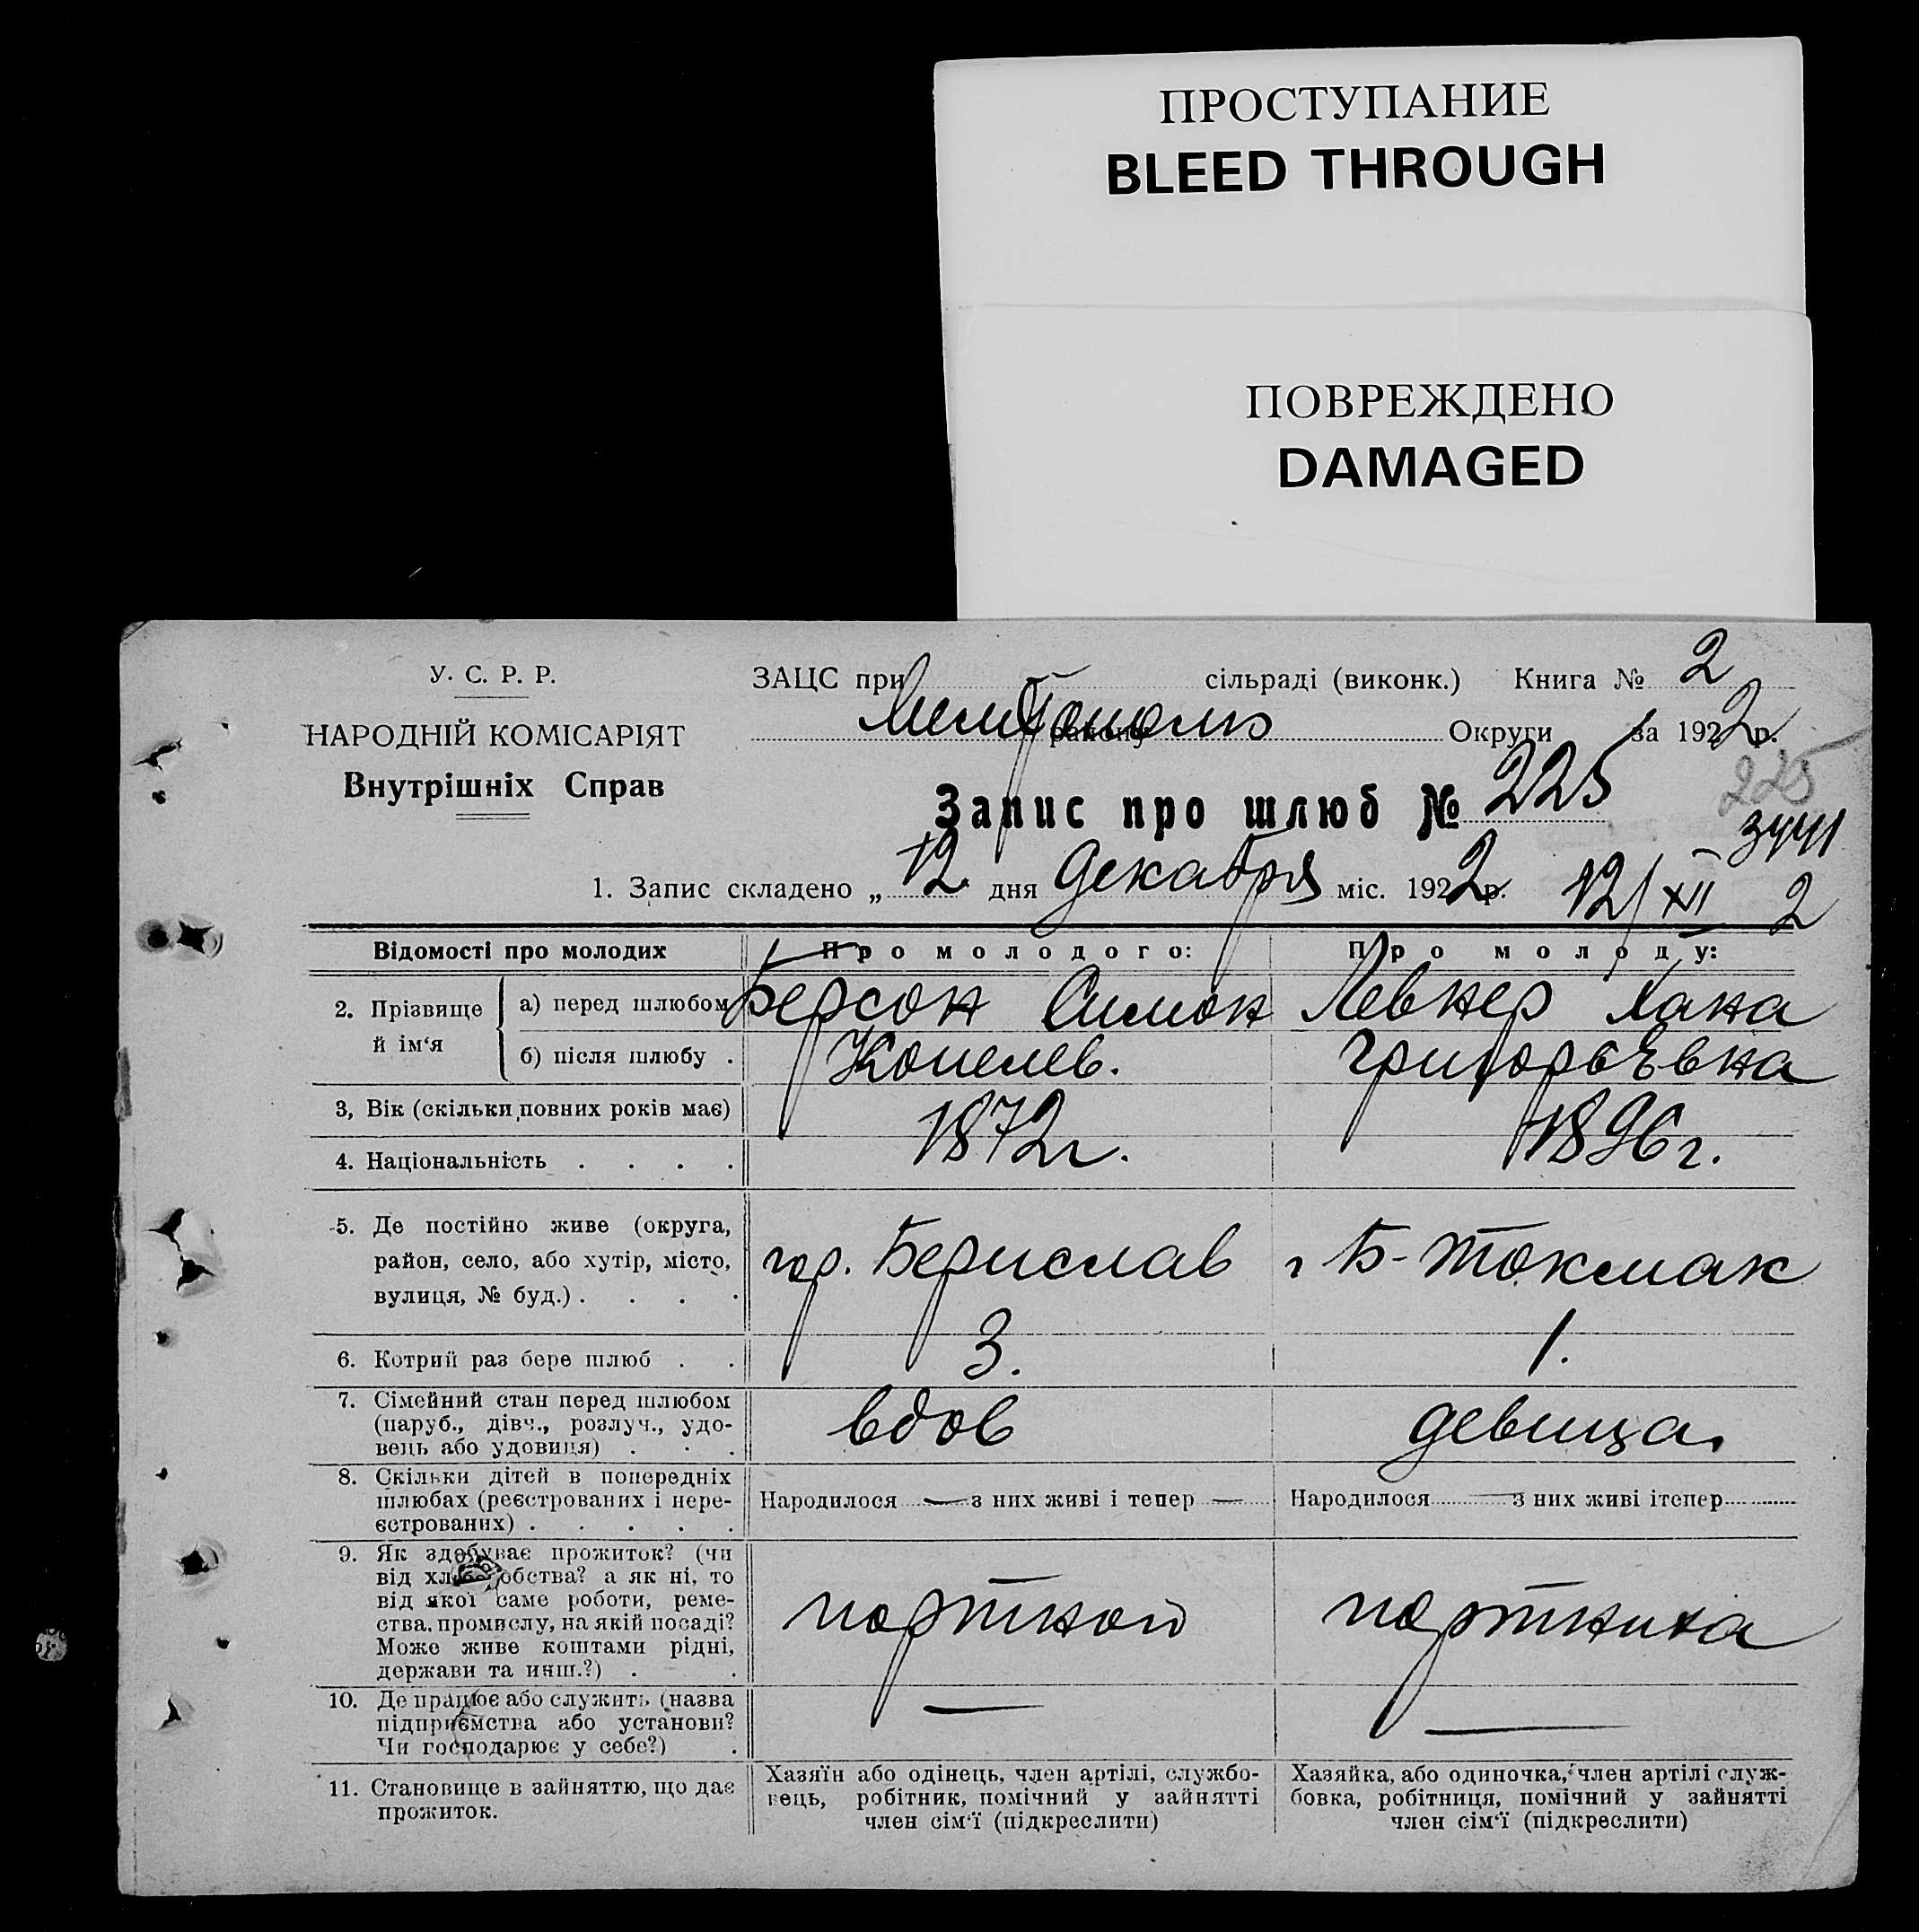 ПРОСТУПАНИЕ
BLEED THROUGH
ПОВРЕЖДЕНО
DAMAGED
У. С. Р. Р.
НАРОДНІЙ КОМІСАРІЯТ
Внутрішніх Справ
ЗАЦС при сільраді (виконк.) Книга № 2
Мелітополь району Округи за 1922 р.
Запис про шлюб № 225
225
3441
1. Запис складено „ 12 дня декабря міс. 1922 р. 12/XII 2
Відомості про молодих
Про молодого:
Про молоду:
2. Прізвище й ім‘я
а) перед шлюбом
б) після шлюбу .
Берсон Симон
Копелев.
Левнер Хана
Григорьевна
3, Вік (скільки повних років має)
1872 г.
1896 г.
4. Національність . . . .
5. Де постійно живе (округа,
район, село, або хутір, місто,
вулиця, № буд.) . . . .
гор. Берислав
г Б-Токмак
6. Котрий раз бере шлюб . .
3.
1.
7. Сімейний стан перед шлюбом
(паруб., дівч., розлуч., удо-
вець або удовиця) . . .
вдов
девица.
8. Скільки дітей в попередніх
шлюбах (реєстрованих і нере-
єстрованих) . . . . .
Народилося — з них живі і тепер —
Народилося — з них живі ітепер
9. Як здобуває прожиток? (чи
від хліборобства? а як ні, то
від якої саме роботи, реме-
ства, промислу, на якій посаді?
Може живе коштами рідні,
держави та инш.?) . .
портной
портниха
10. Де працює або служить (назва
підприємства або установи?
Чи господарює у себе?) .
—
—
11. Становище в зайняттю, що дає
прожиток.
Хазяїн або одінець, член артілі, службо-
вець, робітник, помічний у зайнятті
член сім‘ї (підкреслити)
Хазяйка, або одиночка, член артілі служ-
бовка, робітниця, помічний у зайнятті
член сім‘ї (підкреслити)